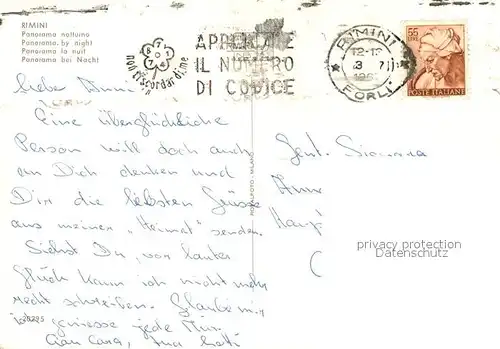 RIMINI
Panorama notturno
Panorama by night
Panorama la nuit
Panorama bei Nacht
non ti scordar di me
APPRENDETE
IL NUMERO
DI CODICE
RIMINI
12-12
3
FORLI
55
LIRE
POSTE ITALIANE
Liebe Anni
Eine überglückliche
Person will doch auch
an Dich denken und
Dir die liebsten Grüsse
aus meiner "Heimat" senden.
Siehst Du, vor lauter
Glück kann ich nicht mehr
recht schreiben. Glaube mir,
ich geniesse jede Min.
Ciao cara, tua
Gent. Signorina
privacy protection
Daten Schutz